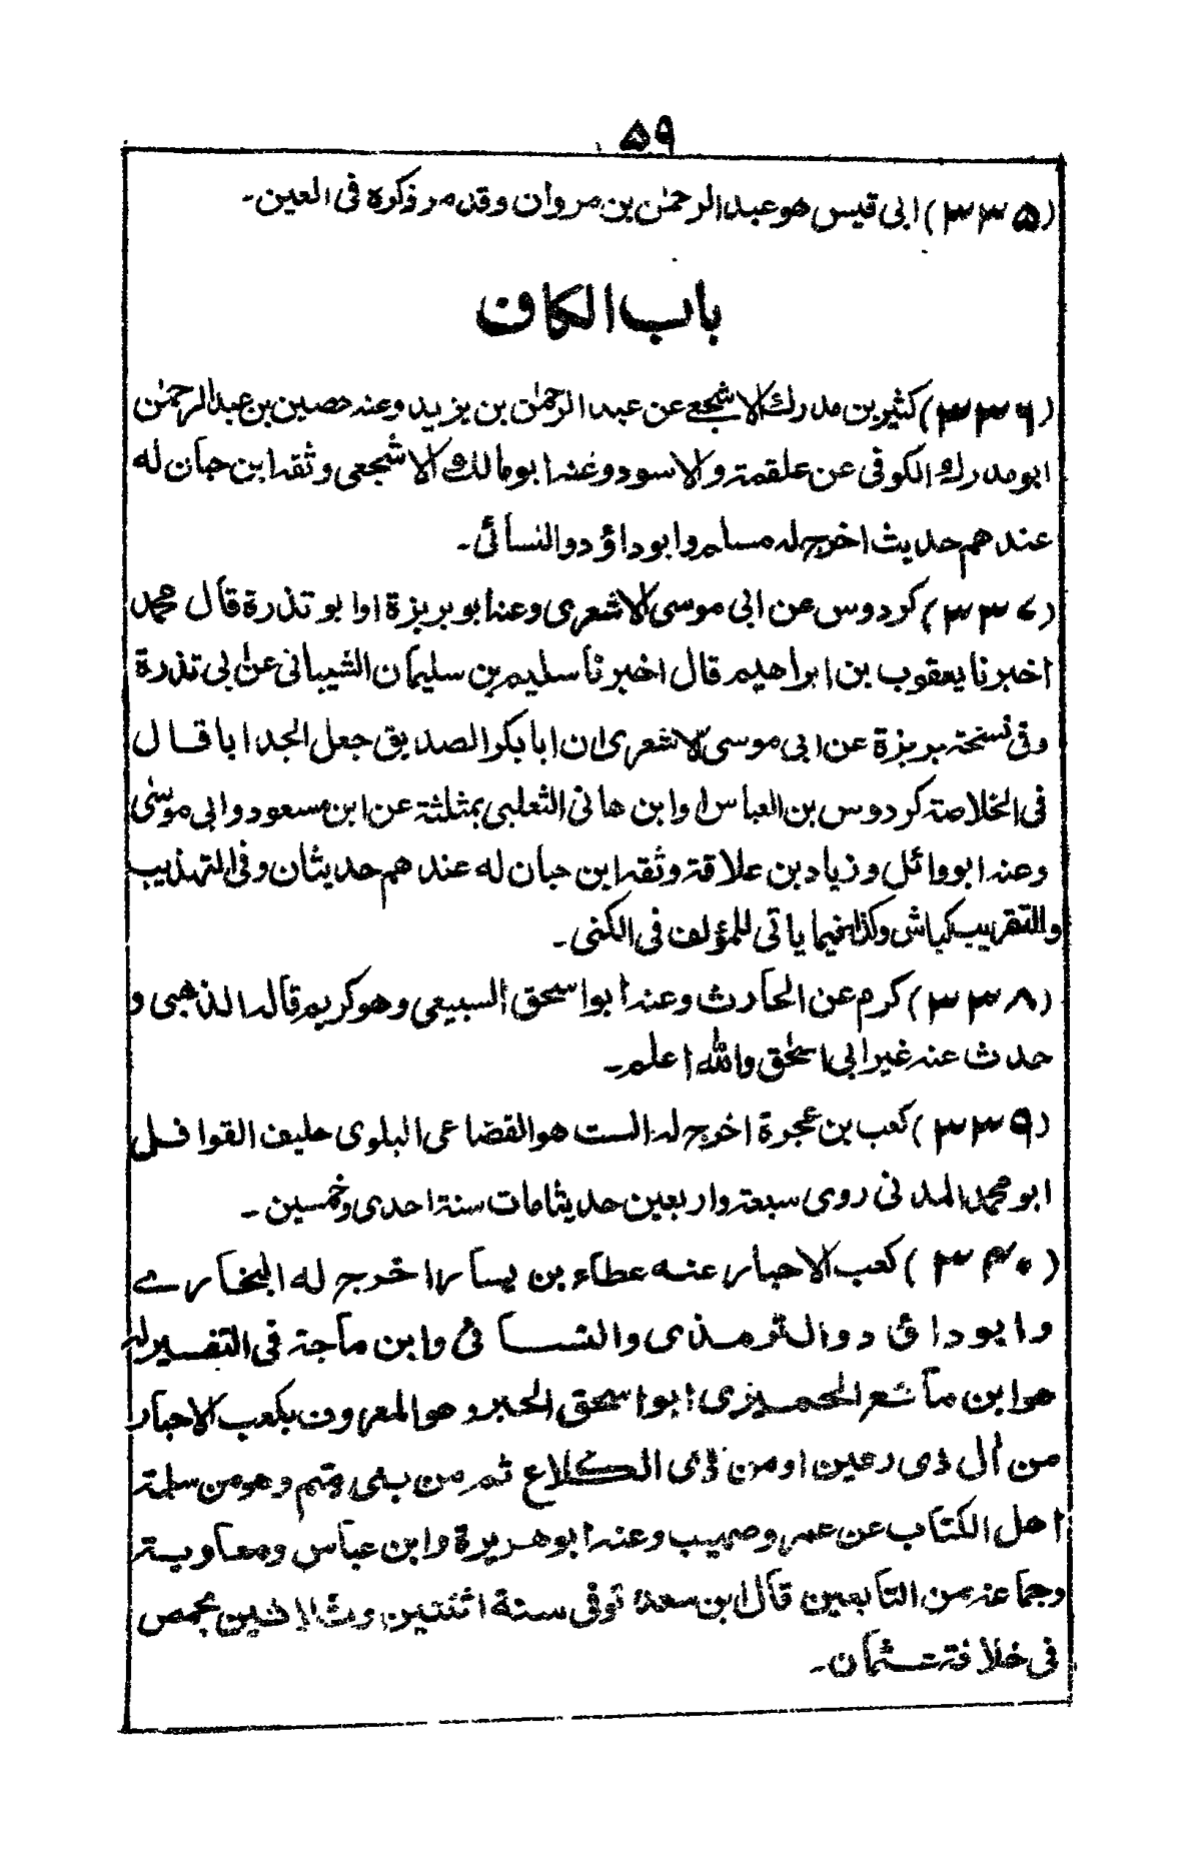 ۵۹
(۳۳۵) ابی قیس هو عبد الرحمٰن بن مروان وقد مر ذکرہ فی العین۔
باب الکاف
(۳۳۶) کثیر بن مدرک الاشجعی عن عبد الرحمٰن بن یزید وعنہ حصین بن عبد الرحمٰن
ابو مدرک الکوفی عن علقمۃ والاسود وعنہ ابو مالک الاشجعی وثقہ ابن حبان له
عندهم حدیث اخرج لہ مسلم وابو داؤد والنسائی۔
(۳۳۷) کردوس عن ابی موسی الاشعری وعنہ ابو بریزۃ او ابو تذرۃ قال محمد
اخبرنا یعقوب بن ابراهیم قال اخبرنا سلیم بن سلیمان الشیبانی عن ابی تذرۃ
وفی نسخۃ بریزۃ عن ابی موسی الاشعری ان ابا بکر الصدیق جعل الجد ابا قال
فی الخلاصۃ کردوس بن العباس او ابن هانی الثعلبی بمثلثۃ عن ابن مسعود وابی موسٰی
وعنہ ابو وائل وزیاد بن علاقۃ وثقہ ابن حبان له عندهم حدیثان وفی التهذیب
والتقریب کباش وکذا فیما یاتی للمؤلف فی الکنی۔
(۳۳۸) کرم عن الحارث وعنہ ابو اسحق السبیعی وهو کریم قالہ الذهبی و
حدث عنہ غیر ابی اسحٰق واللہ اعلم۔
(۳۳۹) کعب بن عجرۃ اخرج لہ الست هو القضاعی البلوی حلیف القوافل
ابو محمد المدنی روی سبعۃ واربعین حدیثا مات سنۃ احدی وخمسین۔
(۳۴۰) کعب الاحبار عنه عطاء بن یسار اخرج له البخارے
وابو داؤد والترمذی والنسائی وابن ماجۃ فی التفسیر لہ
هو ابن ماتع الحمیری ابو اسحق الحبر وهو المعروف بکعب الاحبار
من اٰل ذی رعین او من ذی الکلاع ثم من بنی میتم وهو من سلمۃ
اهل الکتاب عن عمر وصهیب وعنہ ابو هریرۃ وابن عباس ومعاویۃ
وجماعۃ من التابعین قال ابن سعد توفی سنۃ اثنتین وثلاثین بحمص
فی خلافۃ عثمان۔